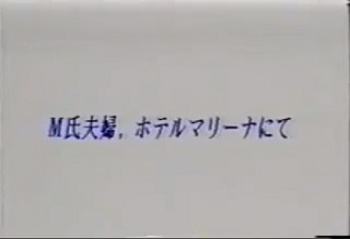 M氏夫婦，ホテルマリーナにて